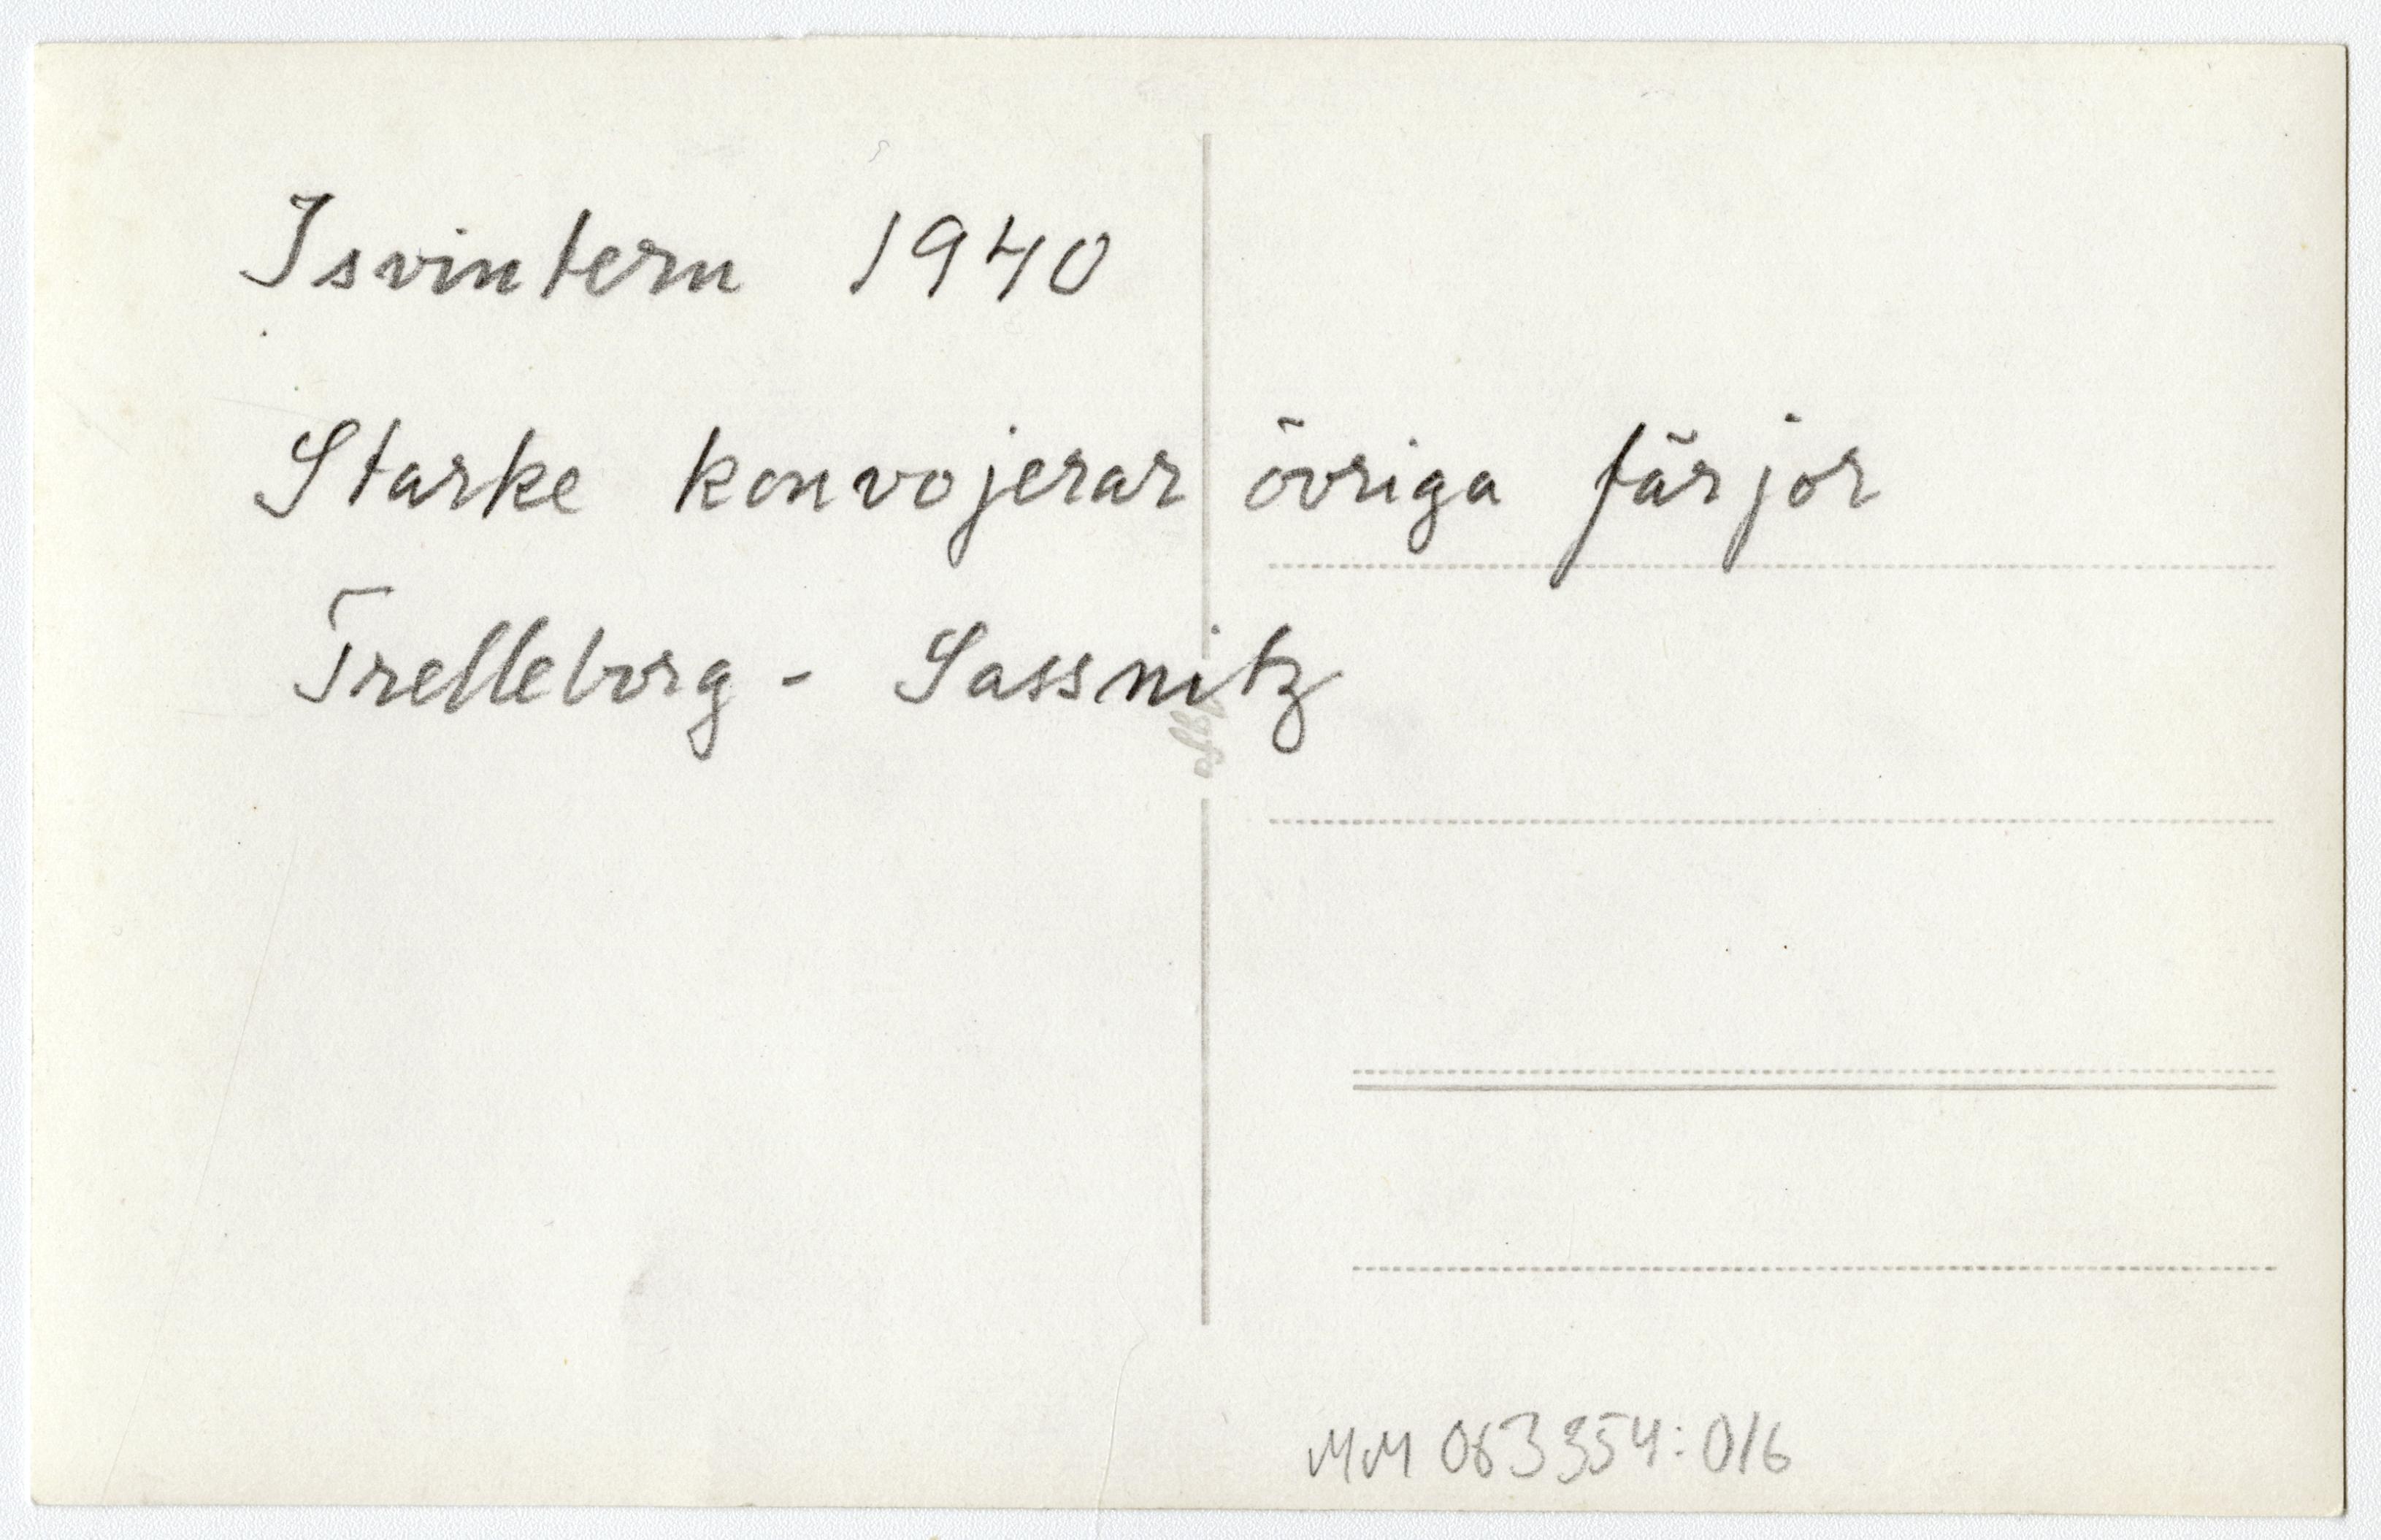 Isvintern 1940
Starke konvojerar övriga färjor
Trelleborg - Sassnitz
MM 063354:016